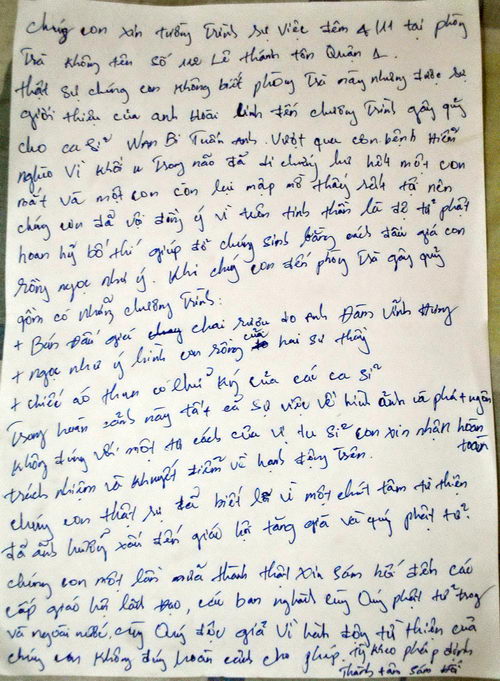 Chúng con xin tường trình sự việc đêm 4/11 tại phòng
Trà không tên số 112 Lê thánh tôn Quận 1.
thật sự chúng con không biết phòng Trà này nhưng được sự
giới thiệu của anh Hoài Linh đến chương Trình gây quỹ
cho ca sĩ Wan Bi Tuấn Anh. Vượt qua cơn bệnh hiểm
nghèo vì khối u Trong não đã di chứng hư hết một con
mắt và một con còn lại mập mờ thấy rất tội nên
chúng con đã vội đồng ý vì trên tinh thần là đệ tử phật
hoan hỷ bố thí giúp đỡ chúng sinh bằng cách đấu giá con
rồng ngọc như ý. Khi chúng con đến phòng Trà gây quỹ
gồm có những chương Trình:
+ Bán đấu giá chai rượu do anh Đàm Vĩnh Hưng
+ ngọc như ý hình con rồng của hai sư thầy
+ chiếc áo thun có chữ ký của các ca sĩ
Trong hoàn cảnh này tất cả sự việc về hình ảnh và phát ngôn
không đúng với một tư cách của vị tu sĩ con xin nhận hoàn toàn
trách nhiệm và khuyết điểm về hành động trên.
chúng con thật sự để biết là vì một chút tâm từ thiện
đã ảnh hưởng xấu đến giáo hội tăng già và quý phật tử.
chúng con một lần nữa thành thật xin sám hối đến các
cấp giáo hội lãnh đạo, các ban nghành cùng Quý phật tử trong
và ngoài nước, cùng Quý độc giả vì hành động từ thiện của
chúng con không đúng hoàn cảnh cho phép. Tỳ kheo pháp định
Thành tâm sám hối